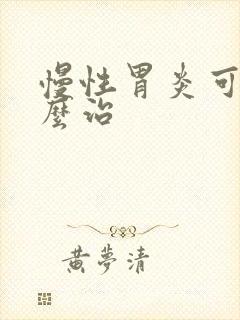 慢性胃炎可
麼治
黃夢清